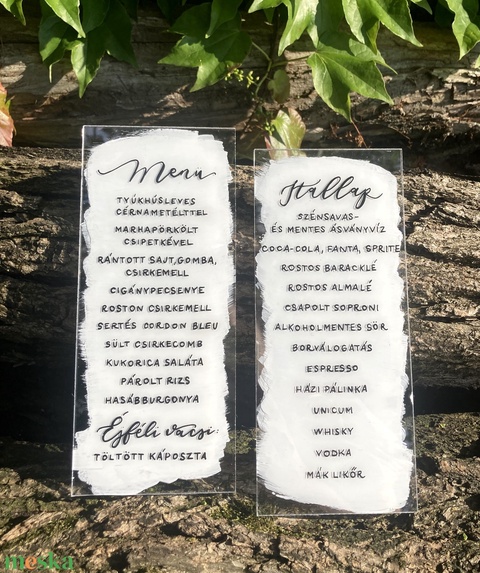 Menü
TYÚKHÚSLEVES
CÉRNAMETÉLTTEL
MARHAPÖRKÖLT
CSIPETKÉVEL
RÁNTOTT SAJT, GOMBA,
CSIRKEMELL
CIGÁNYPECSENYE
ROSTON CSIRKEMELL
SERTÉS CORDON BLEU
SÜLT CSIRKECOMB
KUKORICA SALÁTA
PÁROLT RIZS
HASÁBBURGONYA
Éjféli vacsi:
TÖLTÖTT KÁPOSZTA
Itallap
SZÉNSAVAS-
ÉS MENTES ÁSVÁNYVÍZ
COCA-COLA, FANTA, SPRITE
ROSTOS BARACKLÉ
ROSTOS ALMALÉ
CSAPOLT SOPRONI
ALKOHOLMENTES SÖR
BORVÁLOGATÁS
ESPRESSO
HÁZI PÁLINKA
UNICUM
WHISKY
VODKA
MÁKLIKŐR
meska